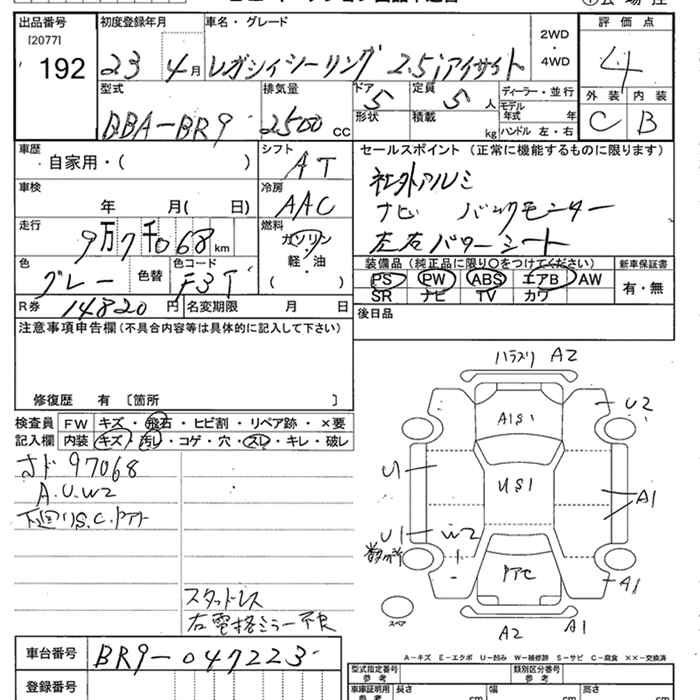 出品番号
[2077]
192
初度登録年月
23 4月
車名・グレード
レガシィツーリング 2.5iアイサイト
2WD
・
4WD
評価点
4
外装 内装
C B
型式
BBA-BR9
排気量
2500 CC
ドア
5
定員
5 人
形状
積載
kg
ディーラー・並行
モデル年式 年
ハンドル 左・右
車歴
自家用・( )
シフト
AT
車検
年 月( 日)
冷房
AAC
走行
9万7千068 km
燃料
ガソリン
・
軽・油
( )
色
グレー
色替
色コード
F3T
R券 14820 円
名変期限 月 日
セールスポイント (正常に機能するものに限ります)
社外アルミ
ナビ バックモニター
左右パワーシート
装備品(純正品に限り○をつけてください)
PS PW ABS エアB AW
SR ナビ TV カワ
新車保証書
有・無
後日品
注意事項申告欄(不具合内容等は具体的に記入して下さい)
修復歴 有 〔箇所 〕
検査員 FW キズ・飛石・ヒビ割・リペア跡・×要
記入欄 内装 キズ・汚し・コゲ・穴・スレ・キレ・破レ
97068
A.U.W2
下廻りS.C.
スタッドレス
右電格ミラー不良
A2
U2
A1S1
U1
US1
A1
U1
W2
A1
スペア
A2
A1
車台番号 BR9-047223
登録番号
A-キズ E-エクボ U-凹み W-補修跡 S-サビ C-腐食 ××-交換済
型式指定番号
参考
類別区分番号
参考
車庫証明用
参考
長さ
cm
幅
cm
高さ
cm